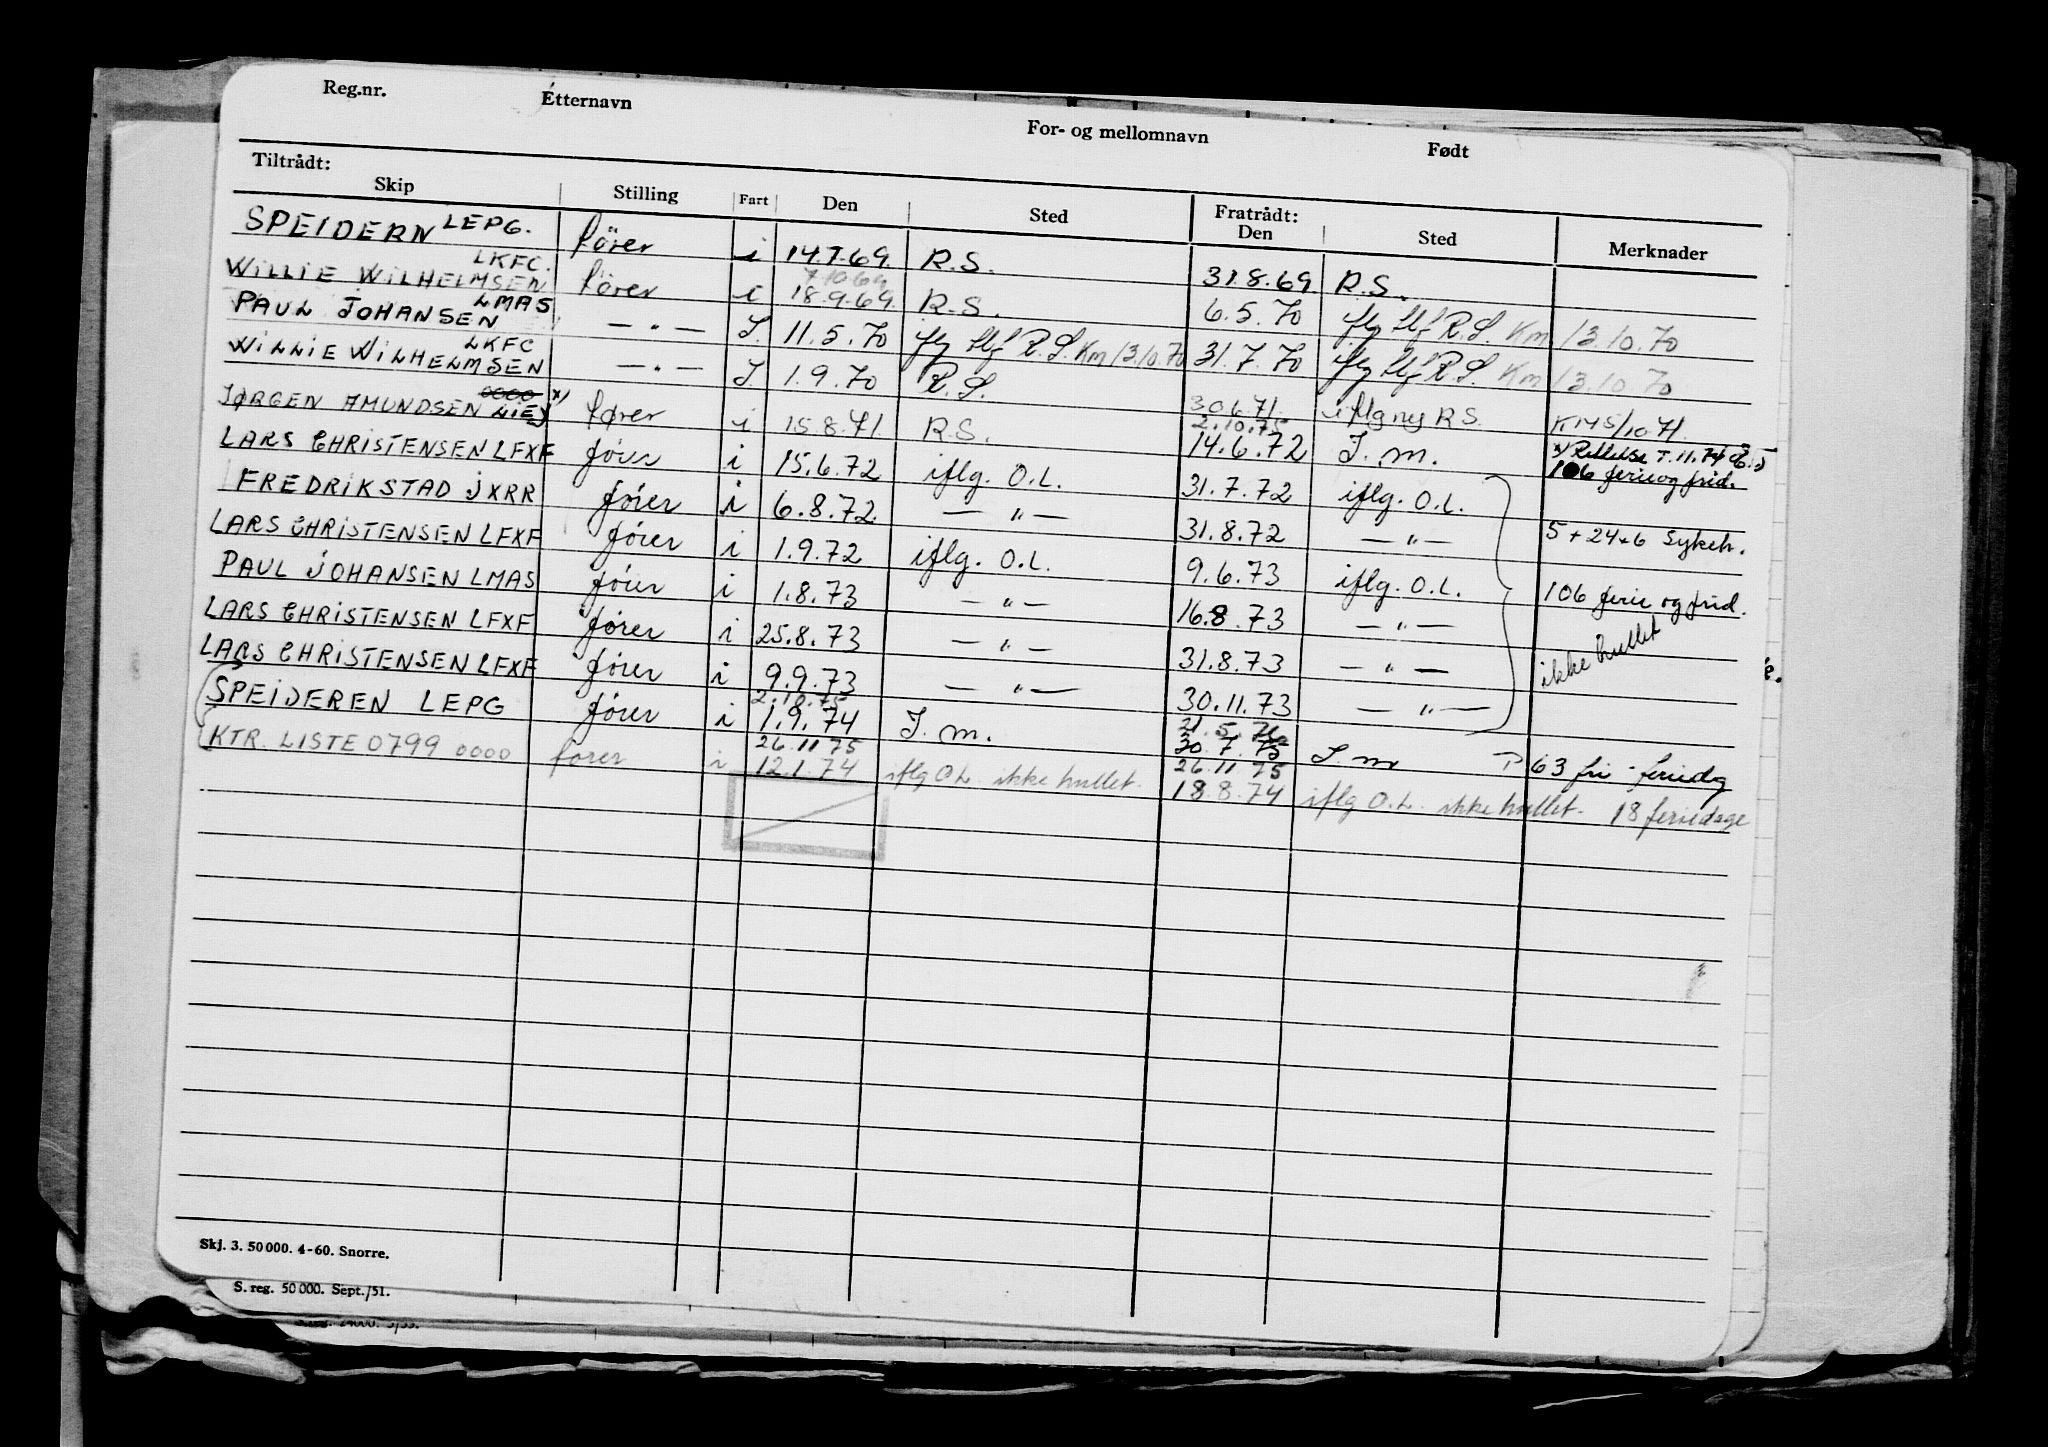 Reg.nr. Etternavn For- og mellomnavn Født
Tiltrådt: Fratrådt:
Skip Stilling Fart Den Sted Den Sted Merknader
SPEIDERN LEPG. fører i 14.7.69. R.S. 31.8.69 R.S.
LKFC. 7.10.69
WILLIE WILHELMSEN fører i 18.9.69. R.S. 6.5.70 R.S. Km 13.10.70
LMAS
PAUL JOHANSEN — " — I. 11.5.70 R.S. Km 13.10.70 31.7.70 R.S. Km 13.10.70
LKFC
WILLIE WILHELMSEN — " — I 1.9.70 R.S. 30.6.71. iflg R.S. KM 5/10.71.
0000 x) 2.10.75
JØRGEN AMUNDSEN fører i 15.8.71. R.S. 14.6.72 I. m. T.11.74
LARS CHRISTENSEN LFXF fører i 15.6.72 iflg. O.L. 31.7.72 iflg. O.L. 106 ferie og frid.
FREDRIKSTAD JXRR fører i 6.8.72. — " — 31.8.72 — " — 5+24+6 Sykeh.
LARS CHRISTENSEN LFXF fører i 1.9.72 iflg. O.L. 9.6.73 iflg. O.L. 106 ferie og frid.
PAUL JOHANSEN LMAS fører i 1.8.73 — " — 16.8.73 — " —
LARS CHRISTENSEN LFXF fører i 25.8.73 — " — 31.8.73 — " — ikke hullet
LARS CHRISTENSEN LFXF fører i 9.9.73 — " — 30.11.73 — " —
2.10.75
SPEIDEREN LEPG fører i 1.9.74 I. m. 30.7.75 I. m 63 fri - feriedg
26.11 75 26.11 75
KTR. LISTE 0799 0000 fører i 12.1.74 iflg O.L. ikke hullet. 18.8.74 iflg O.L. ikke hullet. 18 feriedage
Skj. 3. 50000. 4-60. Snorre.
S. reg. 50 000. Sept./51.